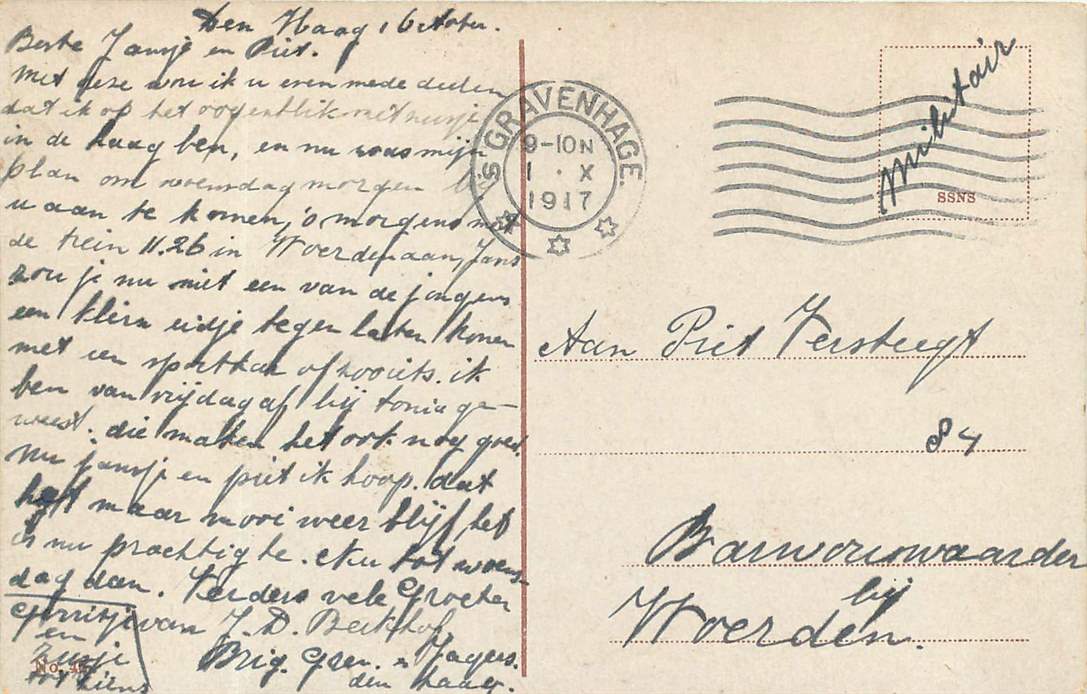 Den Haag 1 October.
Beste Jansje en Piet.
Met deze wou ik u even mede deelen
dat ik op het oogenblik met zusje
in de haag ben, en nu was mijn
plan om woensdag morgen bij
u aan te komen, 's morgens met
de trein 11.26 in Woerden aan, Jans
zou je nu niet een van de jongens
een klein eidje tegen laten komen
met een of zooiets. ik
ben van vrijdag af bij tonia ge-
weest. die maken het ook nog goed.
Nu jansje en piet ik hoop dat
het maar mooi weer blijf het
is nu prachtig he. Nu tot woens-
dag dan. Verders vele Groeten
van J. D. Berkhof
en
zusje
tot ziens
Brig. Gren. en Jagers.
den haag.
No.
'S GRAVENHAGE.
9-10 N
1 . X
1917
militair
SSNS
Aan Piet Versteegt
84
Barwoutswaarder
bij
Woerden.